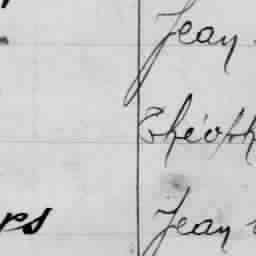 Jean
Théoph
rs Jean